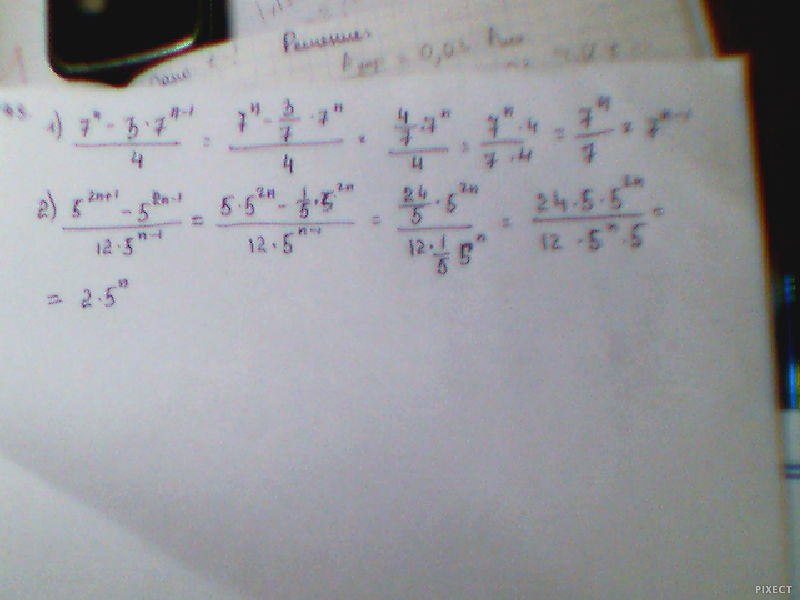 Решение:
1) (7^n - 3·7^(n-1))/4 = (7^n - 3/7 · 7^n)/4 = (4/7 · 7^n)/4 = (7^n · 4)/(7 · 4) = 7^n/7 = 7^(n-1)
2) (5^(2n+1) - 5^(2n-1))/(12·5^(n-1)) = (5·5^(2n) - 1/5·5^(2n))/(12·5^(n-1)) = (24/5 · 5^(2n))/(12·1/5 5^n) = (24·5·5^(2n))/(12 ·5^n·5) =
= 2·5^n
PIXECT